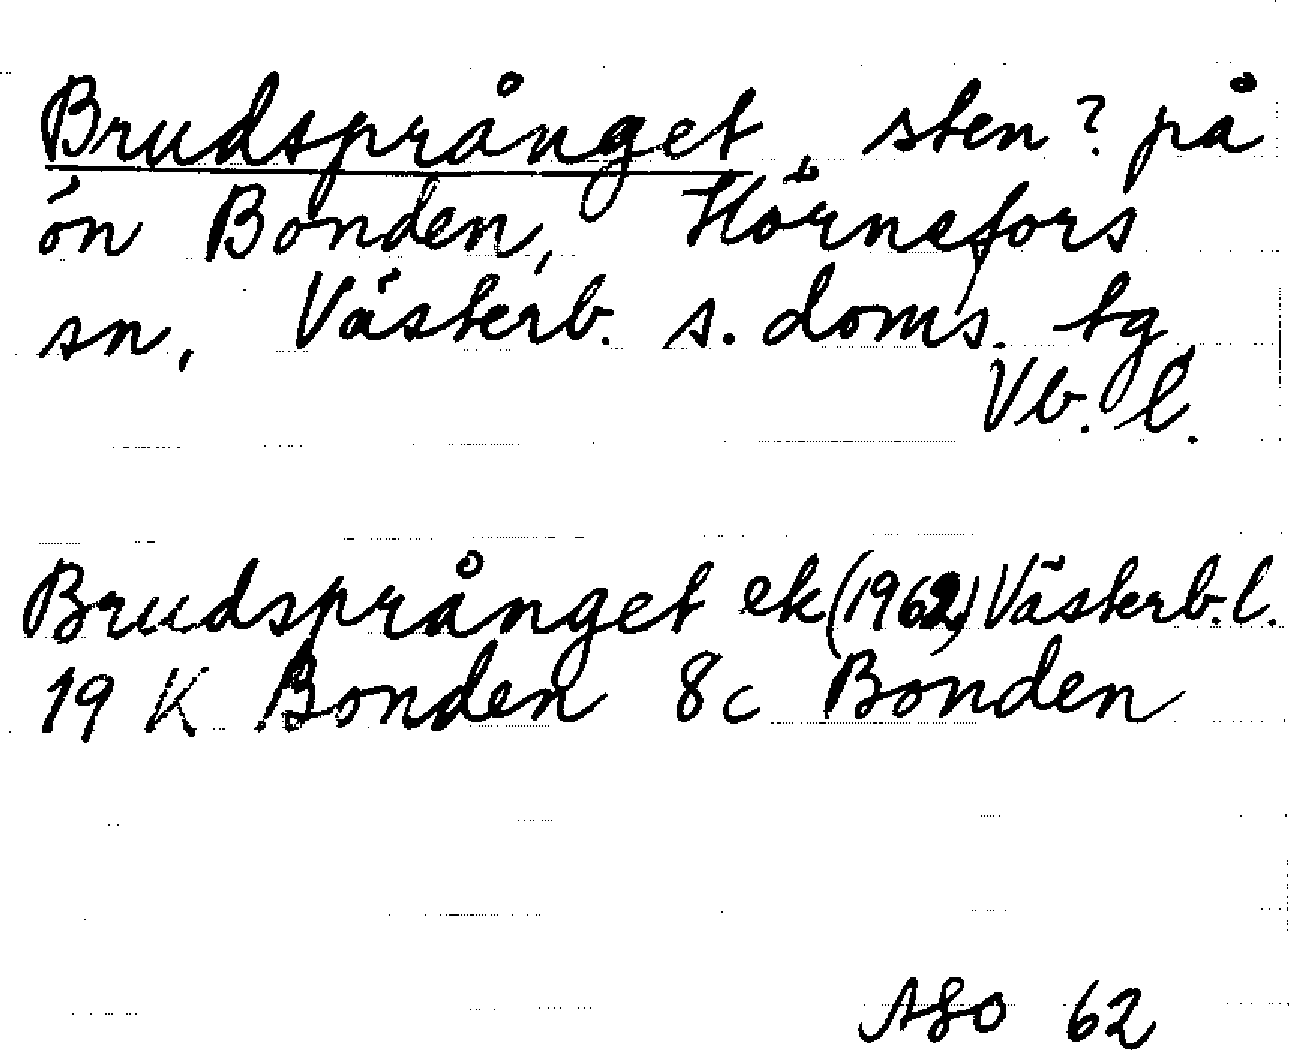 Brudsprånget, sten? på
ön Bonden, Hörnefors
sn, Västerb. s. doms. tg
Vb. l.
Brudsprånget ek (1962) Västerb. l.
19 K Bonden 8c Bonden
ASO 62